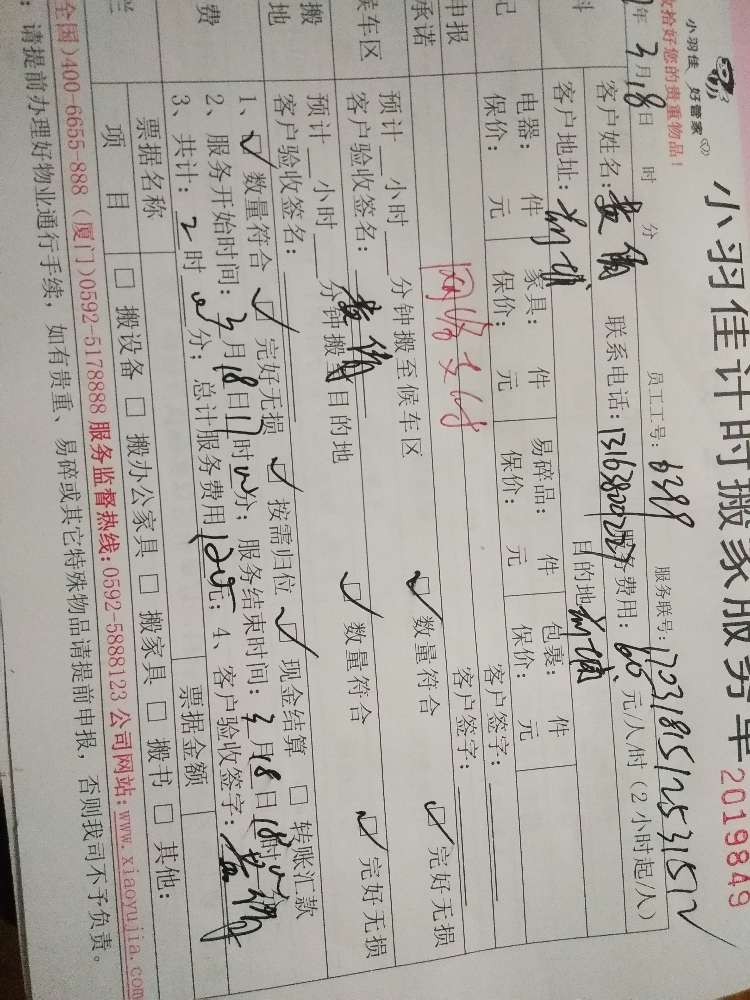 小羽佳 好管家
小羽佳计时搬家服务单
2019849
收拾好您的贵重物品!
员工工号: 6399 服务联号:
年 3月18日 时 分
客户姓名: 联系电话: 服务费用: 60 元/人/时 (2小时起/人)
客户地址: 目的地
电器: 件 家具: 件 易碎品: 件 包裹: 件
保价: 元 保价: 元 保价: 元 保价: 元
客户签字:
申报
承诺
网络支付
客户签字:
预计 小时 分钟搬至候车区 数量符合 完好无损
候车区
客户验收签名:
预计 小时 分钟搬 目的地 数量符合 完好无损
搬
地
客户验收签名:
1、 数量符合 完好无损 按需归位 现金结算 转账汇款
费
2、服务开始时间: 3月18日 时 分; 服务结束时间: 3月18日18时 分
3、共计: 2时 分; 总计服务费用 元; 4、客户验收签字:
票据名称 票据金额
项目 搬设备 搬办公家具 搬家具 搬书 其他:
全国)400-6655-888 (厦门)0592-5178888 服务监督热线:0592-5888123 公司网站:www.xiaoyujia.com
: 请提前办理好物业通行手续, 如有贵重、易碎或其它特殊物品请提前申报, 否则我司不予负责。